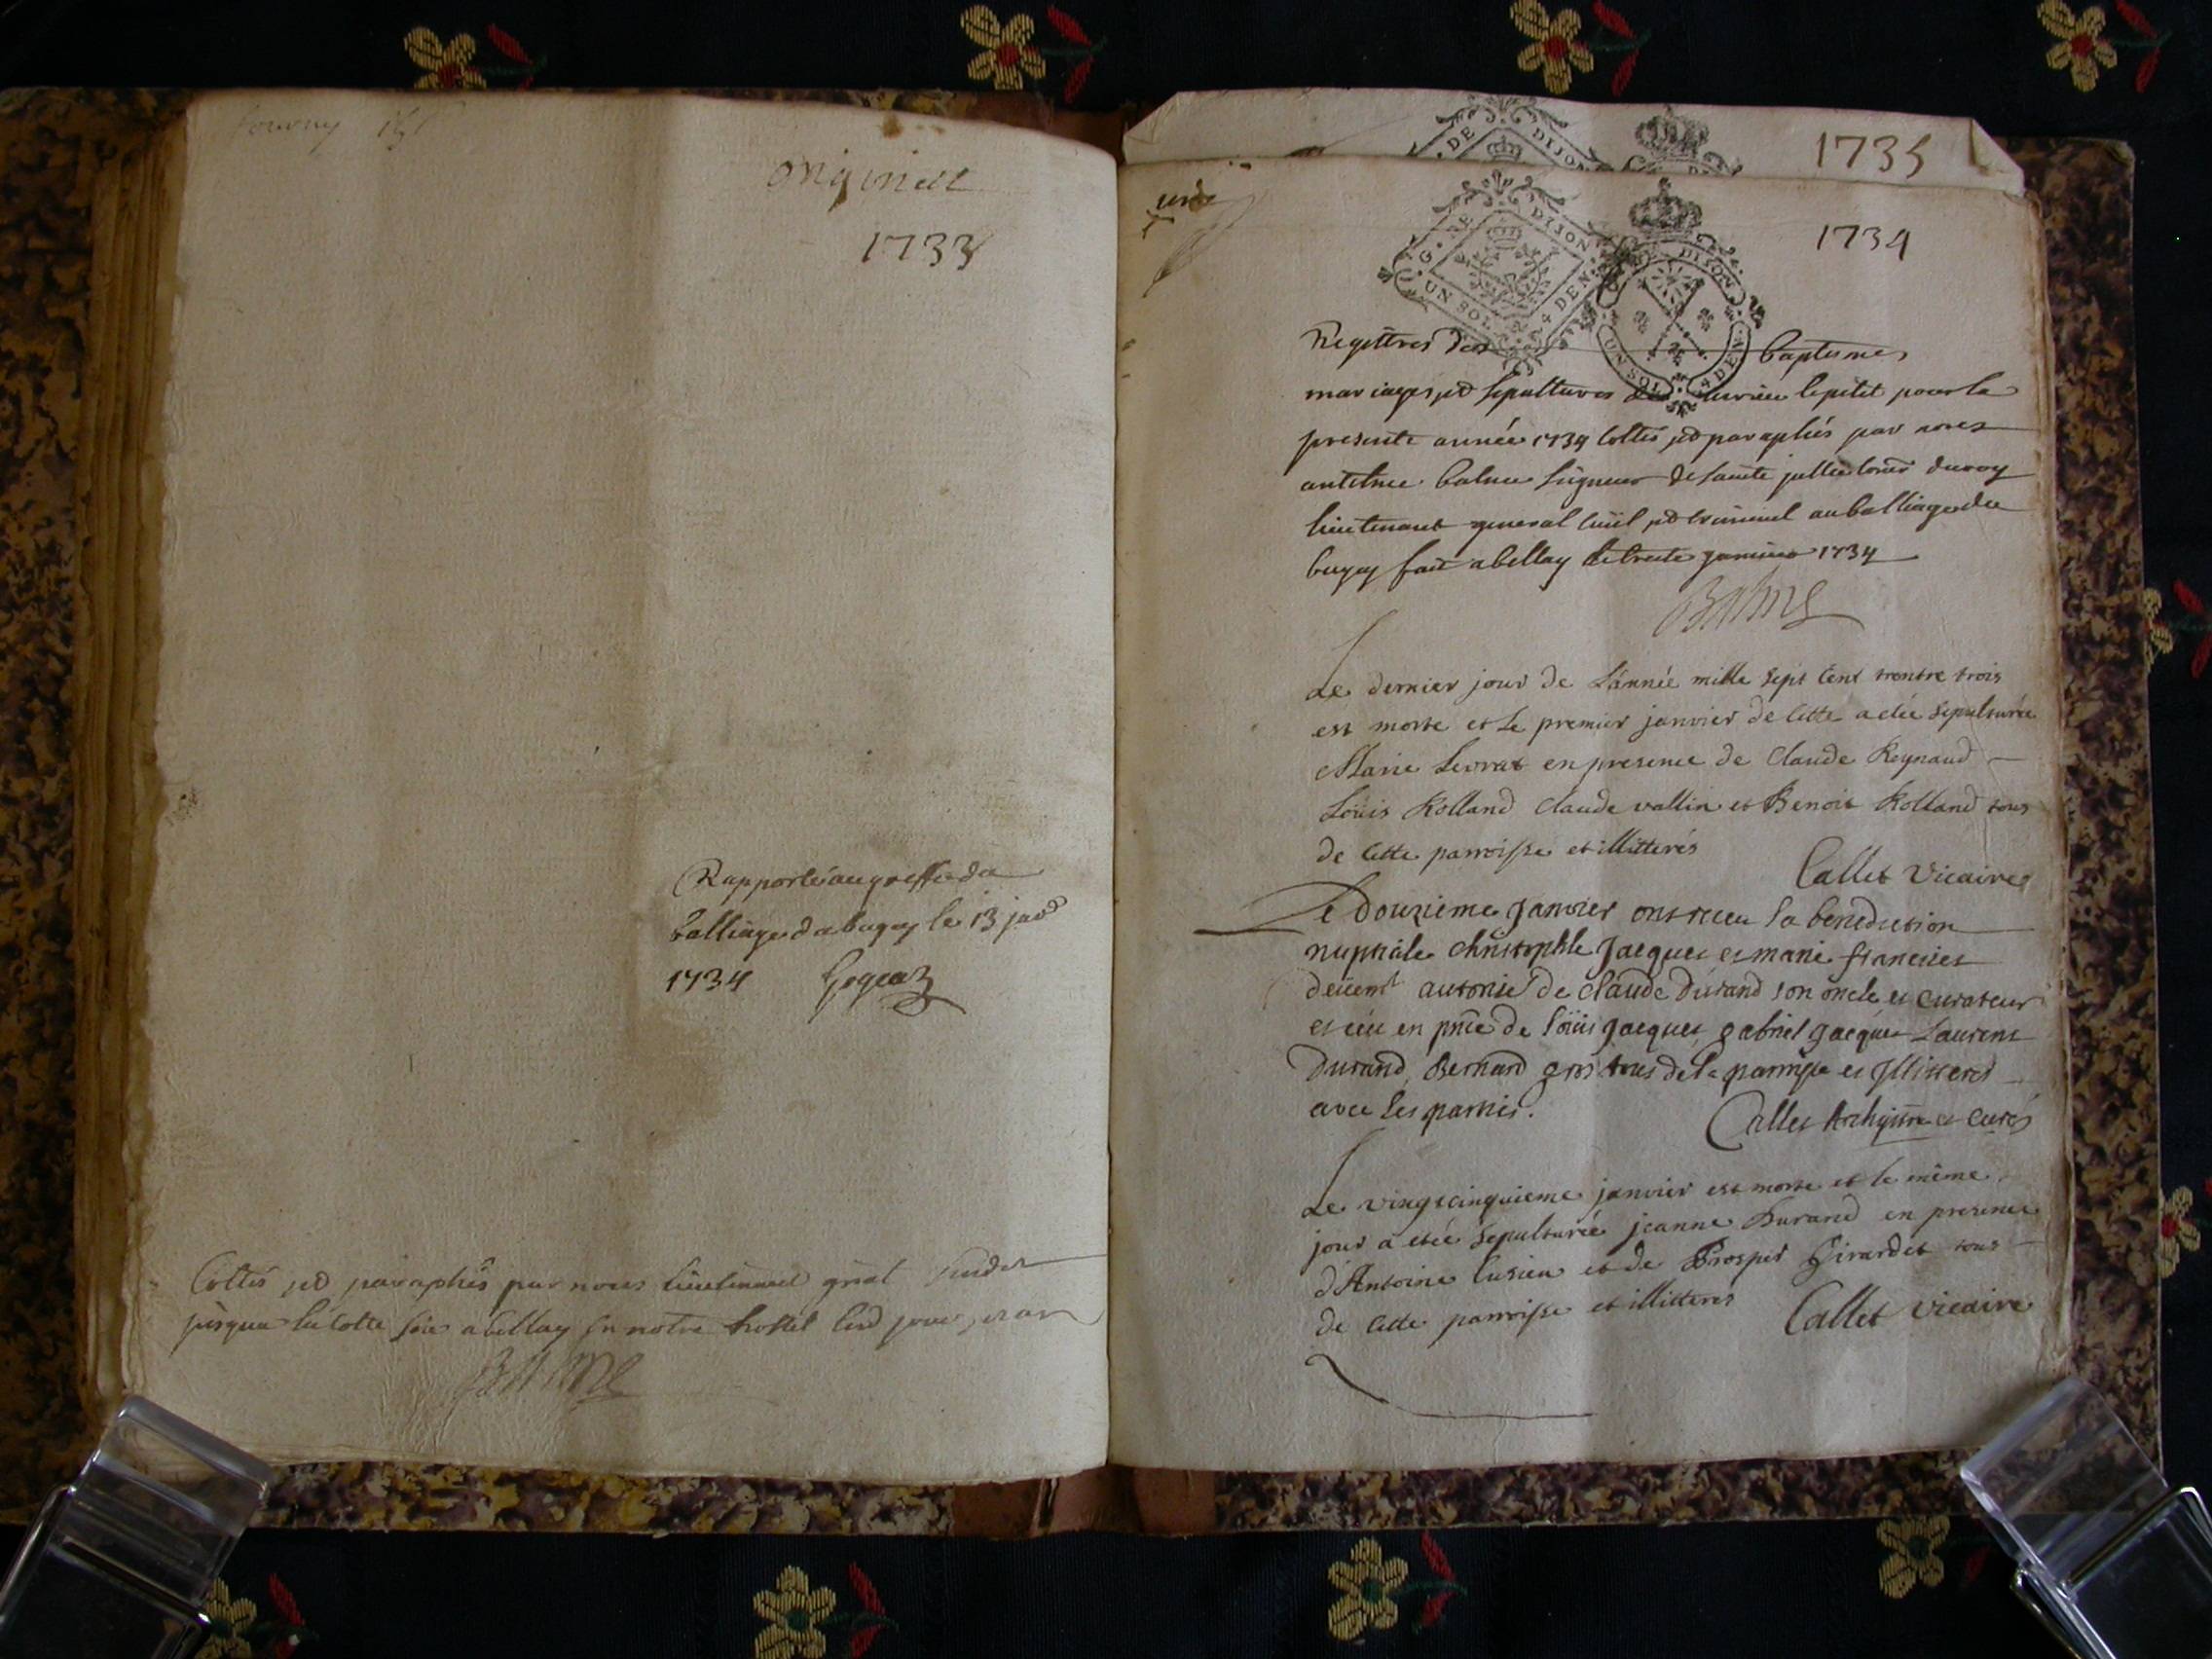 originel
1733
Rapporté au greffe du
balliage du bugey le 13 janv
1734
Cottés et paraphés par nous lieutenant gñal
jusques bellay en notre hostel
Balme
1735
1734
une
G. DE DIJON
UN SOL 4 DEN.
DIJON
UN SOL 4 DEN.
Registres des baptismes
mariages et sepultures lepetit pour la
presente année 1734 Cottés et paraphés par nous
antelme balme seigneur de sainte jullie duroy
lieutenant general Ciuil et Criminel au balliage du
bugey fait a bellay le trente janvier 1734
Balme
Le dernier jour de L'année mille sept Cent trentre trois
est morte et Le premier janvier de Cette a etée sepulturée
Marie Levrat en presence de Claude Reynaud
Loüis Rolland Claude vallin et Benoit Rolland tous
de Cette parroisse et illitterés
Callet Vicaire
Le douzieme Janvier ont receu la benediction
nuptiale christophle Jacques et marie
deüemt autorisé de Claude Durand son oncle et curateur
et ce en pñce de loüis Jacques gabriel Jacques Laurent
Durand Bernard gros tous de la parroisse et Jlliteres
avec les parties.
Callet et Curé
Le vingtcinquieme janvier est morte et le même
jour a etée sepulturée jeanne Durand en presence
d'Antoine et de Prosper Girardet tous
de Cette parroisse et illitteres
Callet Vicaire